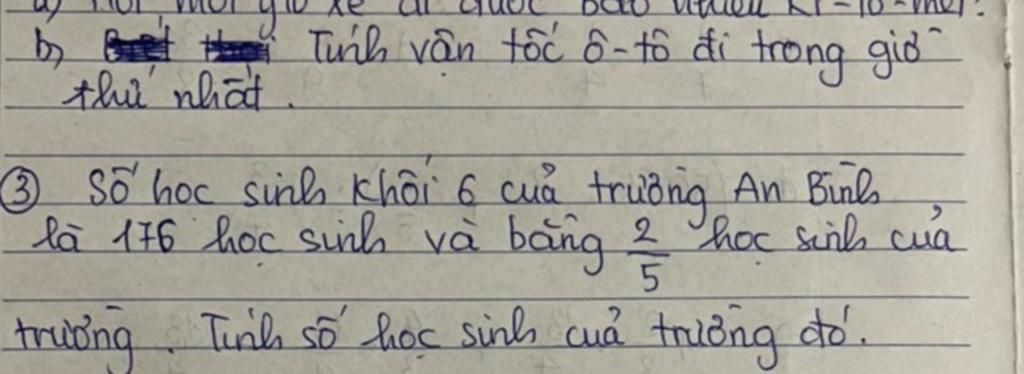 a) Hỏi mỗi giờ xe đi được bao nhiêu ki-lô-mét?
b) Tính vận tốc ô-tô đi trong giờ
thứ nhất.
③ Số học sinh khối 6 của trường An Bình
là 176 học sinh và bằng 2/5 học sinh của
trường. Tính số học sinh của trường đó.